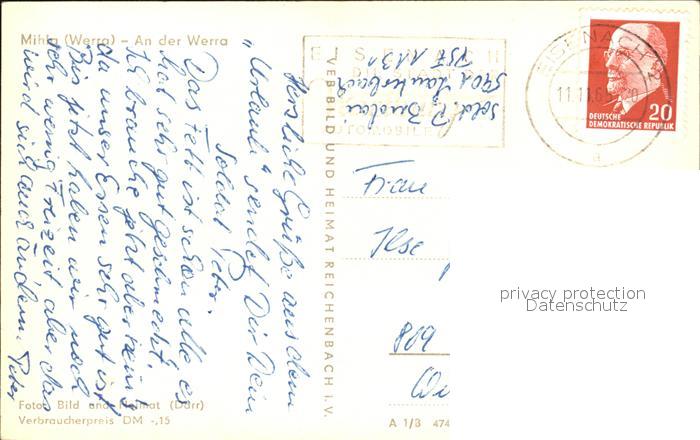 Mihla (Werra) - An der Werra
Herzliche Grüße aus dem
"Urlaub" sendet Dir Dein
Soldat Peter.
Das Fett ist schon alle es
hat sehr gut geschmeckt.
Ich brauche jetzt aber keins
da unser Essen sehr gut ist
Bis jetzt haben wir noch
sehr wenig Freizeit aber das
wird sich auch ändern. Peter
Foto: Bild und Heimat (Dürr)
Verbraucherpreis DM -,15
VEB BILD UND HEIMAT REICHENBACH I. V.
EISENACH
AUTOMOBILE
Sold. P.
5901 Lauterbach
PSF 113
EISENACH 2
11.11.6
a
20
DEUTSCHE
DEMOKRATISCHE REPUBLIK
Frau
Ilse
A 1/B 474
privacy protection
Datenschutz